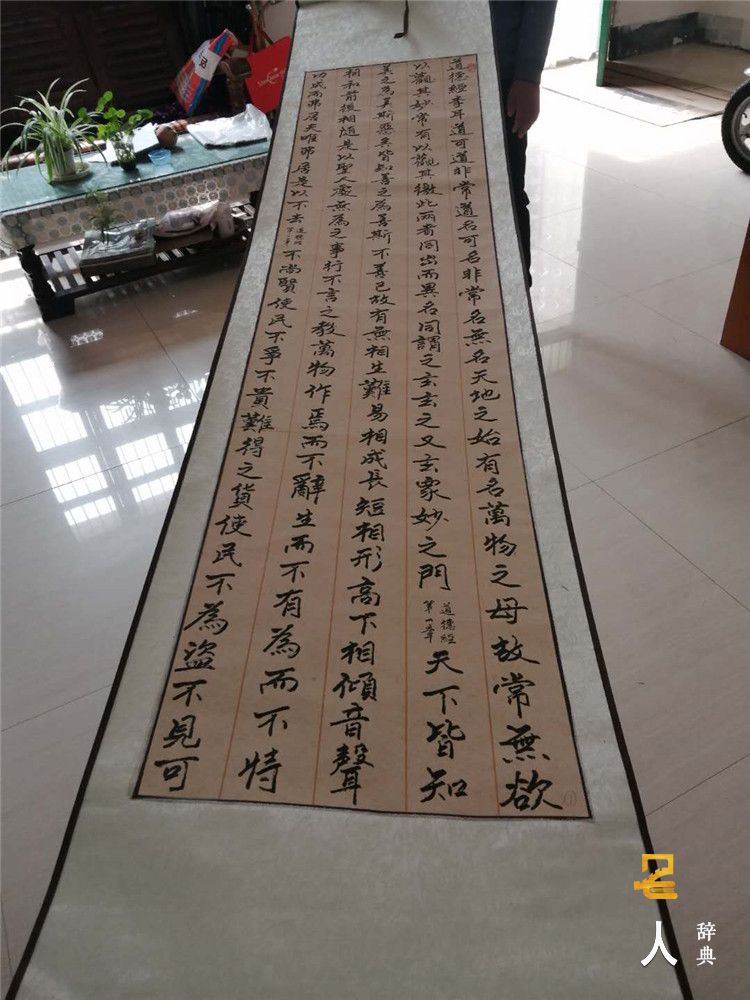 道德經李耳道可道非常道名可名非常名無名天地之始有名萬物之母故常無欲
以觀其妙常有以觀其徼此兩者同出而異名同謂之玄玄之又玄衆妙之門道德經第一章天下皆知
美之為美斯惡矣皆知善之為善斯不善已故有無相生難易相成長短相形高下相傾音聲
相和前後相隨是以聖人處無為之事行不言之教萬物作焉而不辭生而不有為而不恃
功成而弗居夫唯弗居是以不去道德經第二章不尚賢使民不爭不貴難得之貨使民不為盜不見可
人
辭典